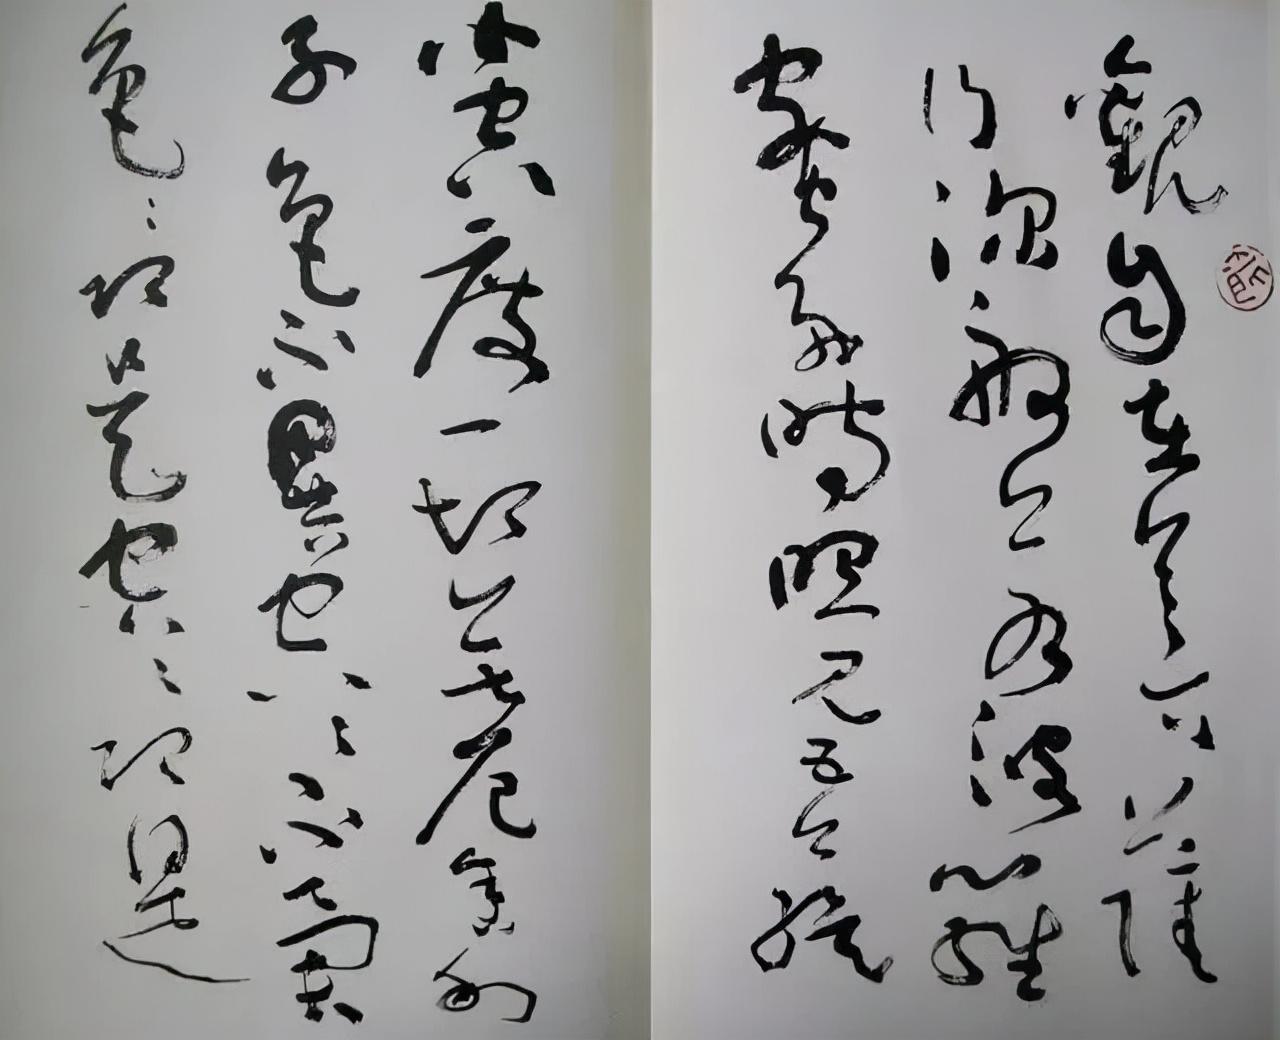 觀自在菩薩
行深般若波羅
蜜多時照見五蘊
皆空度一切苦厄舍利
子色不異空〻不異
色〻即是空〻即是